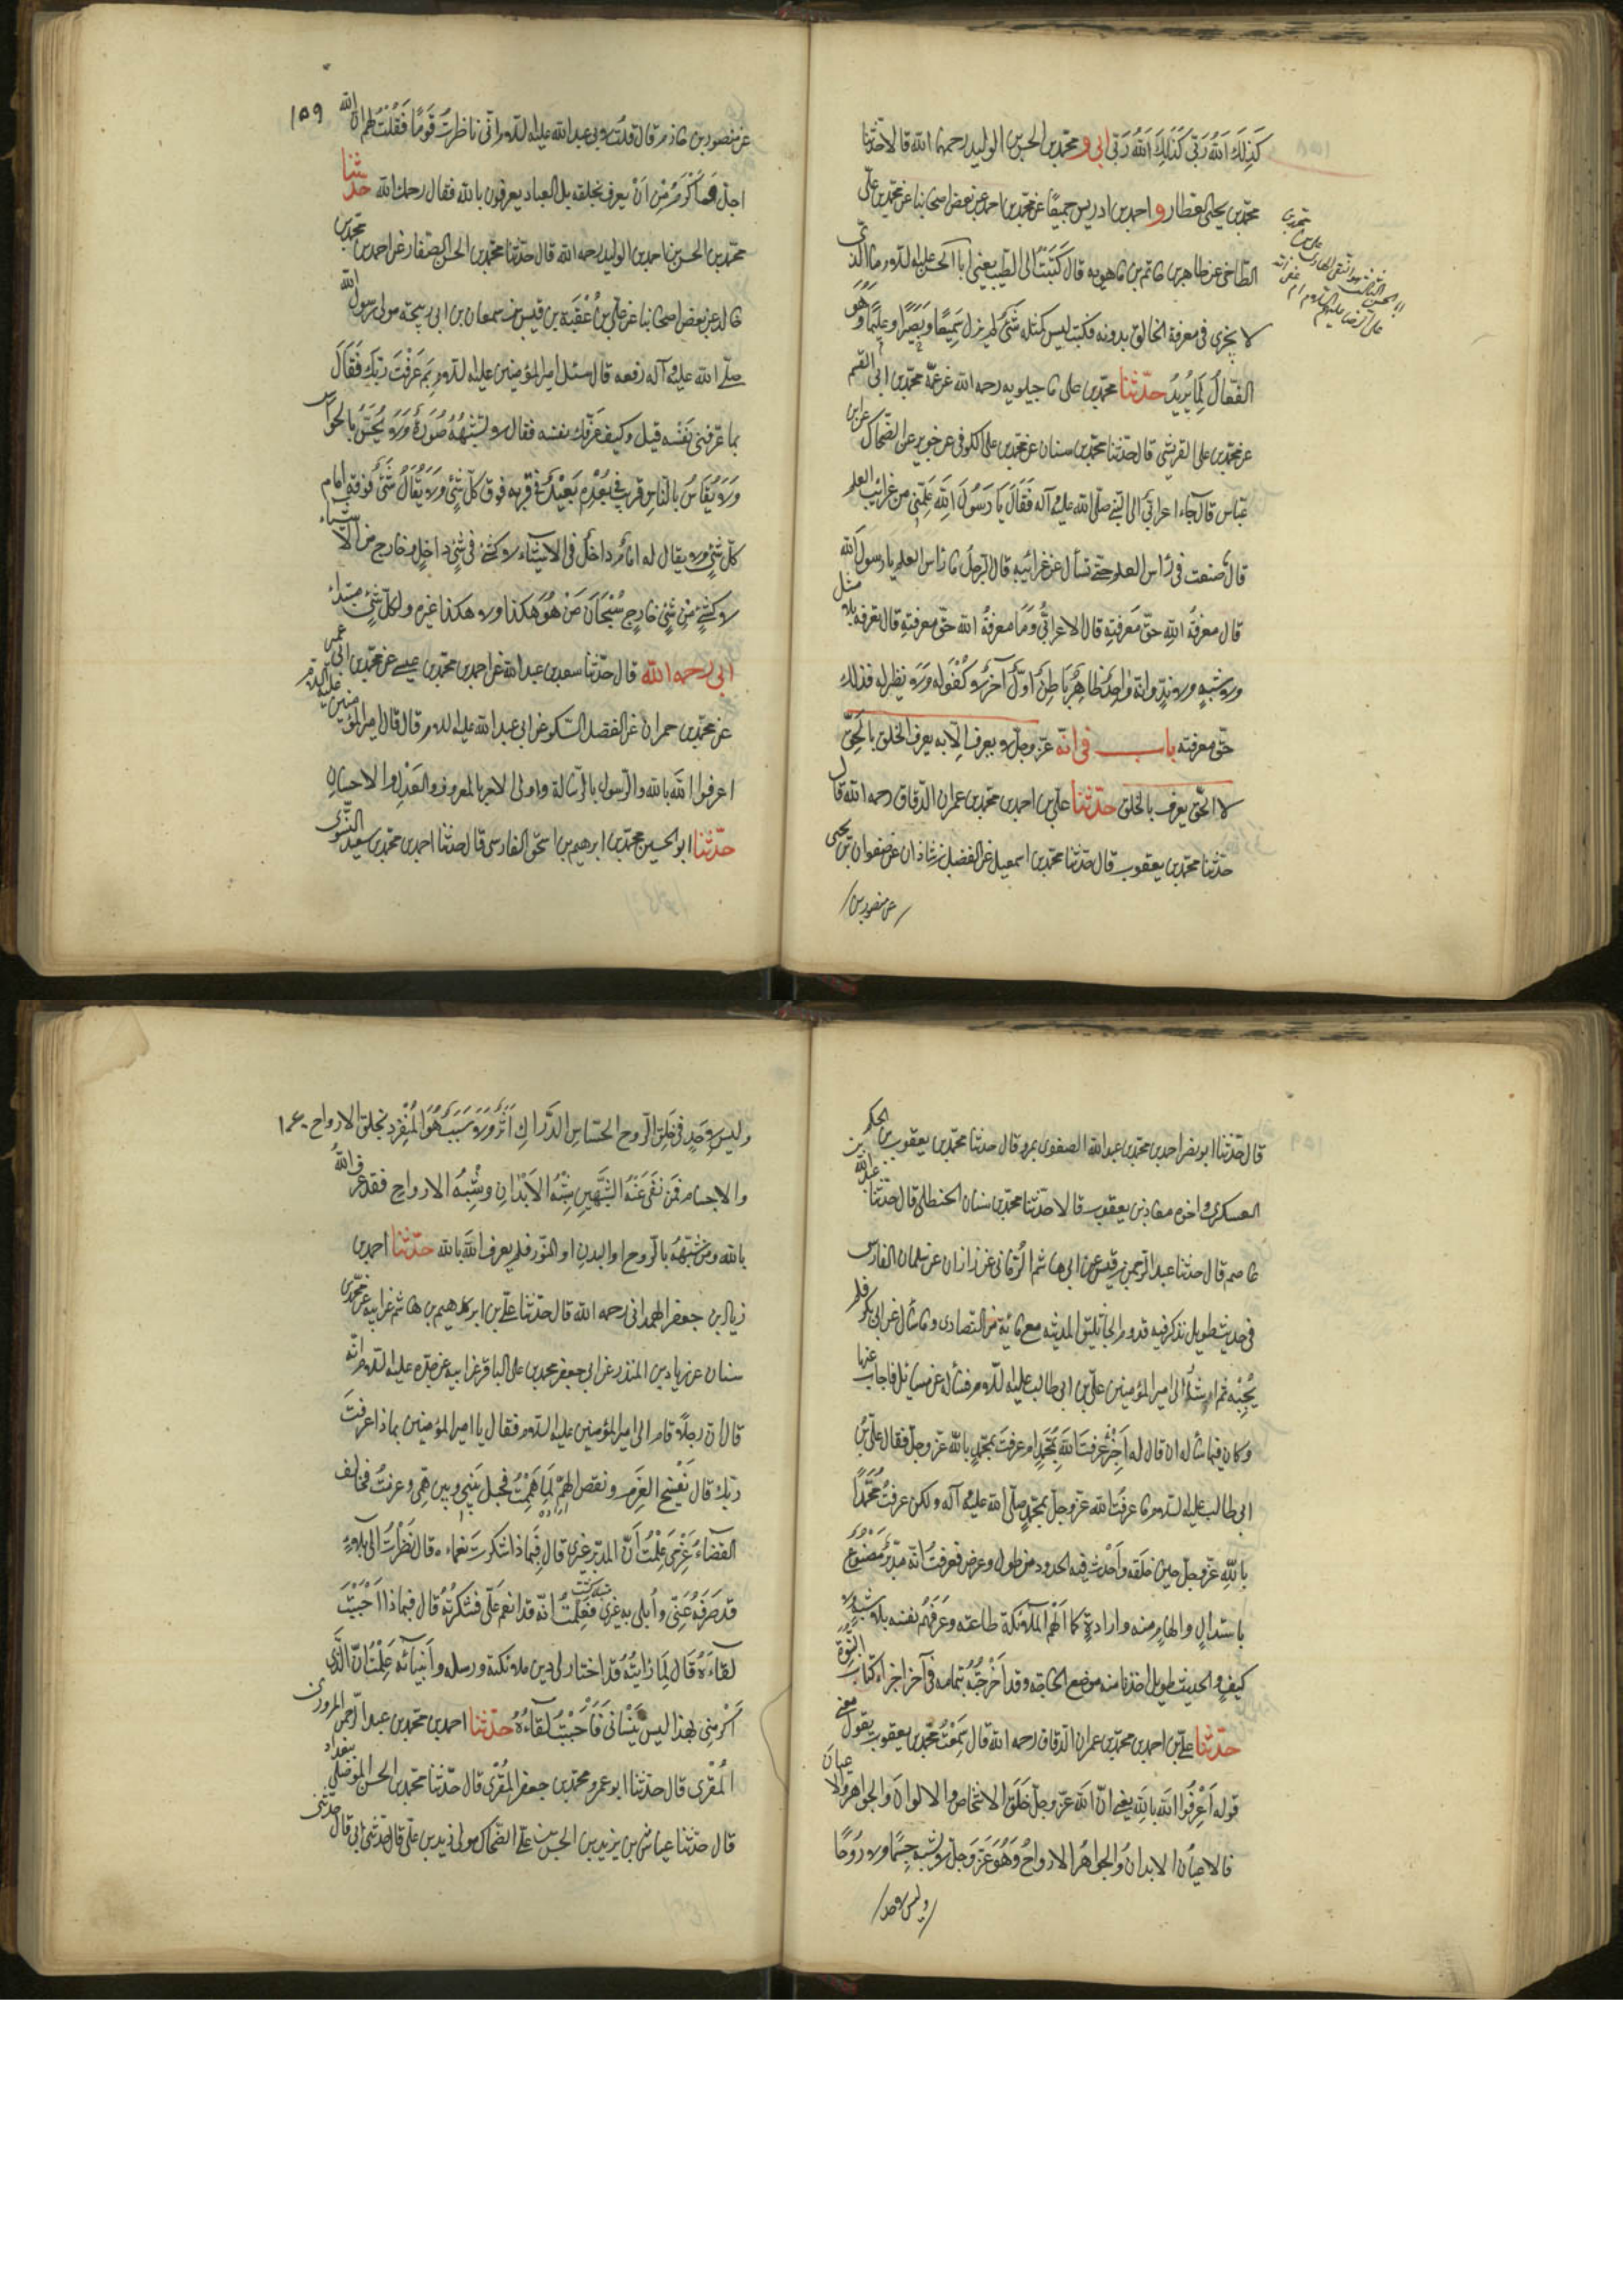 كَذلِكَ اللهُ رَبّى كَذلِكَ اللهُ رَبّى ابى و محمّد بن الحسن بن الوليد رحمهما الله قالا حدّثنا
محمّد بن يحيى العطار و احمد بن ادريس جميعًا عن محمّد بن احمد عن بعض اصحابنا عن محمّد بن علىّ
الطّاحى عن طاهر بن حاتم بن ماهويه قال كتبتُ الى الطيّب يعنى ابا الحسن عليه السّلام ما الّذى
لا يجزى فى معرفة الخالق بدونه فكتب ليس كمثله شَىْءٌ لم يزل سَمِيعًا وبَصِيرًا وعليمًا وَهُوَ
الفعّالُ لِمَا يُرِيدُ حدّثنا محمّد بن على ماجيلويه رحمه الله عن عمّه محمّد بن ابى القسم
عن محمّد بن على القرشى قال حدّثنا محمّد بن سنان عن محمّد بن على الكوفى عن جويبر عن الضحاك عن ابن
عبّاس قال جاء اعرابىّ الى النّبى صلّى الله عليه وآله فَقَالَ يَا رَسُولَ اللهِ عَلِّمْنِى من غرائب العلم
قال ما صنعت فى رأس العلم حتّى تسأل عن غرائبه قال الرّجل ما رأس العلم يا رسول الله
قال معرفةُ اللهِ حقّ معرفتِهِ قال الاعرابىُّ وَمَا معرفةُ الله حقّ معرفتِهِ قال تعرفه بلا مثل
ولا شبهٍ ولا ندٍّ وانّه واحدٌ ظاهِرٌ بَاطِنٌ اَوّلٌ آخرٌ لا كُفْوَ له ولا نظير له فذلك
حقّ معرفته باب فى انّه عزّ وجلّ لا يعرف الّا به يعرف الخلق بالحقّ
لا الحقّ يعرف بالخلق حدّثنا علىّ بن احمد بن محمّد بن عمران الدّقاق رحمه الله قال
حدّثنا محمّد بن يعقوب قال حدّثنا محمّد بن اسمعيل عن الفضل بن شاذان عن صفوان بن يحيى
عن منصور بن
١٥٩
عن منصور بن حازم قال قلت لابى عبد الله عليه السّلام انّى ناظرتُ قَومًا فَقُلْتُ لهم انّ الله
اجلّ واكرم من اَنْ يعرف بخلقه بل العباد يعرفون بالله فقال رحمك الله حدّثنا
محمّد بن الحسن بن احمد بن الوليد رحمه الله قال حدّثنا محمّد بن الحسن الصفّار عن احمد بن محمّد بن
خالد عن بعض اصحابنا عن علىّ بن عُقْبَة بن قيس بن سمعان بن ابى ربيحة مولى رسول الله
صلّى الله عليه وآله رفعه قال سئل امير المؤمنين عليه السّلام بِمَ عَرَفْتَ رَبّك فَقَالَ
بما عرّفنى نَفْسه قيل وكيف عَرّفك نفسه فقال لا تشبهُهُ صُورَةٌ ولا يُحَسُّ بالحواس
ولا يُقَاسُ بالنّاسِ قريب فى بُعْدِهِ بَعيْدٌ فى قربه فوق كلّ شئ ولا يُقَالُ شَئٌ فوقه امام
كلّ شئ ولا يقال له امام داخل فى الاشياء لا كشئ فى شئ داخل وخارج من الاشياء
لا كشئ من شئ خارج سُبْحَانَ مَنْ هُوَ هكذا ولا هكذا غيره ولكلّ شئ مبتداء
ابى رحمه الله قال حدّثنا سعد بن عبد الله عن احمد بن محمّد بن عيسى عن محمّد بن ابى عمير
عن محمّد بن حمران عن الفضل السّكونى عن ابى عبد الله عليه السّلام قال قال امير المؤمنين عليه السّلام
اعرفوا اللهَ بالله والرّسول بالرّسالة واولى الامر بالمعروف والعَدْلِ والاحسان
حدّثنا ابو الحسين محمّد بن ابرهيم بن اسحق الفارسى قال حدّثنا احمد بن محمّد بن سعيد النّسوى
قال حدّثنا ابو نصر احمد بن محمّد بن عبد الله الصغدى بمرو قال حدثنا محمّد بن يعقوب بن الحكم بن
العسكرى واخوه معاذ بن يعقوب قالا حدّثنا محمّد بن سنان الحنظلى قال حدّثنا عبد الله بن
عاصم قال حدثنا عبد الرّحمن بن قيس عن ابى هاشم الرُمّانى عن زاذان عن سلمان الفارسى
فى حديث طويل يذكر فيه قدوم الجاثليق المدينه مع مائة من النّصارى وما سأل عن ابى بكر فلم
يُجِبْه ثم ارشد الى امير المؤمنين علىّ بن ابى طالب عليه السّلام فسأله عن مسائل فاجابه عنها
وكان فيما سأله ان قال له اَخْبِرْنى عَرَفتَ اللهَ بمُحَمّدٍ ام عرفتَ محمّدٍ بالله عزّ وجلّ فقال علىّ بن
ابى طالب عليه السّلام ما عرفتُ الله عزّ وجلّ بمحمّدٍ صلّى الله عليه وآله ولكن عرفتُ مُحَمّدًا
بالله عزّ وجلّ حين خلقه وأحْدث فيه الحدود من طول وعرض فعرفتُ انّه مدبَّر مَصْنُوعٌ
باستدلالٍ والهامٍ منه وارادةٍ كما الهم الملائكة طاعته وعرّفهم نفسه بلا شبهٍ ولا
كيفٍ والحديث طويل اخذنا منه موضع الحاجة وقد اَخرجتُهُ بتمامه فى آخر اجزاء كتاب النّبوّة
حدّثنا علىّ بن احمد بن محمّد بن عمران الدّقاق رحمه الله قال سَمِعْتُ محمّد بن يعقوب يقول معنى
قوله اَعْرِفُوا اللهَ باللهِ يعنى انّ الله عزّ وجلّ خَلَقَ الاشخاص والالوانَ والجواهر والاعيانَ
فالاعيان الابدانُ والجواهر الارواحُ وَهُوَ عَزّ وَجلّ لا يشبه جسمًا ولا رُوحًا
وليس لاحد
١٦٠
وليس لاحَدٍ فى خَلق الرّوح الحسّاسِ الدَّرّاكِ اَثَرٌ ولا سَبَبٌ هُوَ المُنْفَرِد بخلق الارواح
والاجسام فَمَن نفَى عَنْهُ الشَّبَهَينِ شِبْهُ الاَبْدَانِ وشِبْهُ الارواح فقد عرف اللهَ
بالله ومن شبّهَهُ بالرّوح او البدن او النّور فلم يعرف اللهَ بالله حدّثنا احمد بن
زياد بن جعفر الهمدانى رحمه الله قال حدّثنا علىّ بن ابرهيم بن هاشم عن ابيه عن محمّد بن
سنان عن زياد بن المنذر عن ابى جعفر محمد بن على الباقر عن ابيه عن جدّه عليه السّلام انّه
قال انّ رجلًا قام الى امير المؤمنين عليه السّلام فقال يا امير المؤمنين بماذا عرفتَ
ربّك قال بفسْخ العَزم ونقض الهمّ لمّا هَمَمْتُ فحيل بَيْنى وبين همّى وعزمتُ فخالف
القضاءُ عَزْمى عَلِمْتُ اَنّ المدبّر غيرى قال فَبِماذا شكرت نعماءه قال نَظَرْتُ الى بلاءٍ
قد صَرَفَهُ عَنّى واُبلى به غيرى فَعَلِمْتُ انّه قد انعم عَلَىّ فشكرتُهُ قال فبماذا اَحْبَبْتَ
لقاءَهُ قَالَ لمّا رَاَيْتُهُ قد اختار لى دين ملائكته ورسله واَنبيائه عَلِمْتُ انّ الّذى
اَكْرمنى بهذا ليس يَنْسانى فَاَحْبَبْتُ لقاءَهُ حدّثنا احمد بن محمّد بن عبد الرّحمن المروزى
المُقْرى قال حدّثنا ابو عمرو محمّد بن جعفر المُقْرى قال حدّثنا محمّد بن الحسن الموصلى ببغداد
قال حدّثنا عياش بن يزيد بن الحسن بن على الضّحاك مولى زيد بن علىّ قال حدّثنى ابى قال حدّثنى